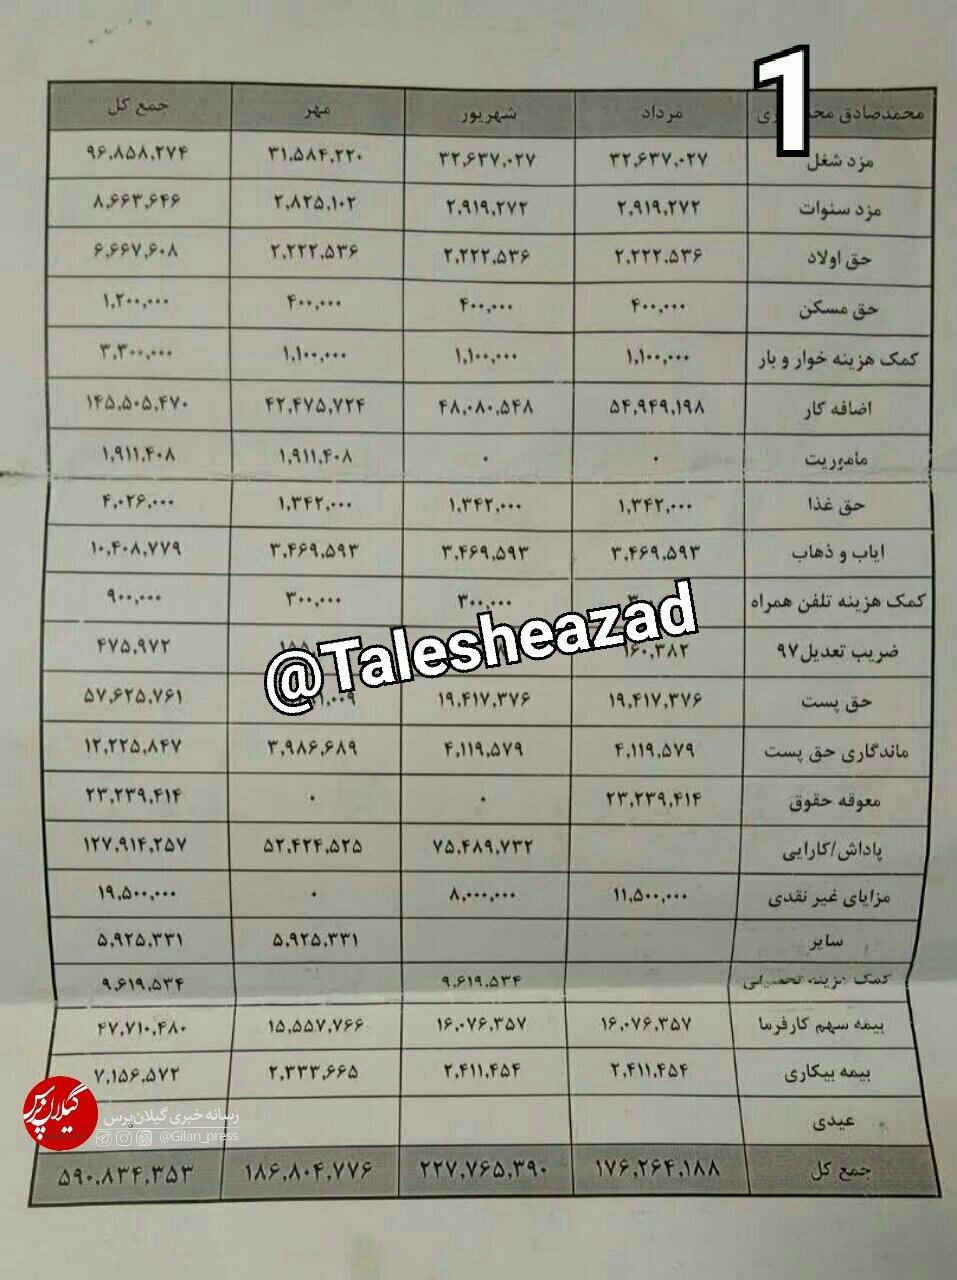 1
محمدصادق مرداد شهریور مهر جمع کل
مزد شغل ۳۲,۶۳۷,۰۲۷ ۳۲,۶۳۷,۰۲۷ ۳۱,۵۸۴,۲۲۰ ۹۶,۸۵۸,۲۷۴
مزد سنوات ۲,۹۱۹,۲۷۲ ۲,۹۱۹,۲۷۲ ۲,۸۲۵,۱۰۲ ۸,۶۶۳,۶۴۶
حق اولاد ۲,۲۲۲,۵۳۶ ۲,۲۲۲,۵۳۶ ۲,۲۲۲,۵۳۶ ۶,۶۶۷,۶۰۸
حق مسکن ۴۰۰,۰۰۰ ۴۰۰,۰۰۰ ۴۰۰,۰۰۰ ۱,۲۰۰,۰۰۰
کمک هزینه خوار و بار ۱,۱۰۰,۰۰۰ ۱,۱۰۰,۰۰۰ ۱,۱۰۰,۰۰۰ ۳,۳۰۰,۰۰۰
اضافه کار ۵۴,۹۴۹,۱۹۸ ۴۸,۰۸۰,۵۴۸ ۴۲,۴۷۵,۷۲۴ ۱۴۵,۵۰۵,۴۷۰
ماموریت ۰ ۰ ۱,۹۱۱,۴۰۸ ۱,۹۱۱,۴۰۸
حق غذا ۱,۳۴۲,۰۰۰ ۱,۳۴۲,۰۰۰ ۱,۳۴۲,۰۰۰ ۴,۰۲۶,۰۰۰
ایاب و ذهاب ۳,۴۶۹,۵۹۳ ۳,۴۶۹,۵۹۳ ۳,۴۶۹,۵۹۳ ۱۰,۴۰۸,۷۷۹
کمک هزینه تلفن همراه ۳۰۰,۰۰۰ ۳۰۰,۰۰۰ ۹۰۰,۰۰۰
@Talesheazad
ضریب تعدیل۹۷ ۱۶۰,۳۸۲ ۴۷۵,۹۷۲
حق پست ۱۹,۴۱۷,۳۷۶ ۱۹,۴۱۷,۳۷۶ ۵۷,۶۲۵,۷۶۱
ماندگاری حق پست ۴,۱۱۹,۵۷۹ ۴,۱۱۹,۵۷۹ ۳,۹۸۶,۶۸۹ ۱۲,۲۲۵,۸۴۷
معوقه حقوق ۲۳,۲۳۹,۴۱۴ ۰ ۰ ۲۳,۲۳۹,۴۱۴
پاداش/کارایی ۷۵,۴۸۹,۷۳۲ ۵۲,۴۲۴,۵۲۵ ۱۲۷,۹۱۴,۲۵۷
مزایای غیر نقدی ۱۱,۵۰۰,۰۰۰ ۸,۰۰۰,۰۰۰ ۰ ۱۹,۵۰۰,۰۰۰
سایر ۵,۹۲۵,۳۳۱ ۵,۹۲۵,۳۳۱
کمک هزینه تحصیلی ۹,۶۱۹,۵۳۴ ۹,۶۱۹,۵۳۴
بیمه سهم کارفرما ۱۶,۰۷۶,۳۵۷ ۱۶,۰۷۶,۳۵۷ ۱۵,۵۵۷,۷۶۶ ۴۷,۷۱۰,۴۸۰
بیمه بیکاری ۲,۴۱۱,۴۵۴ ۲,۴۱۱,۴۵۴ ۲,۳۳۳,۶۶۵ ۷,۱۵۶,۵۷۲
عیدی
جمع کل ۱۷۶,۲۶۴,۱۸۸ ۲۲۷,۷۶۵,۳۹۰ ۱۸۶,۸۰۴,۷۷۶ ۵۹۰,۸۳۴,۳۵۳
گیلان پرس
رسانه خبری گیلان‌پرس
@Gilan_press